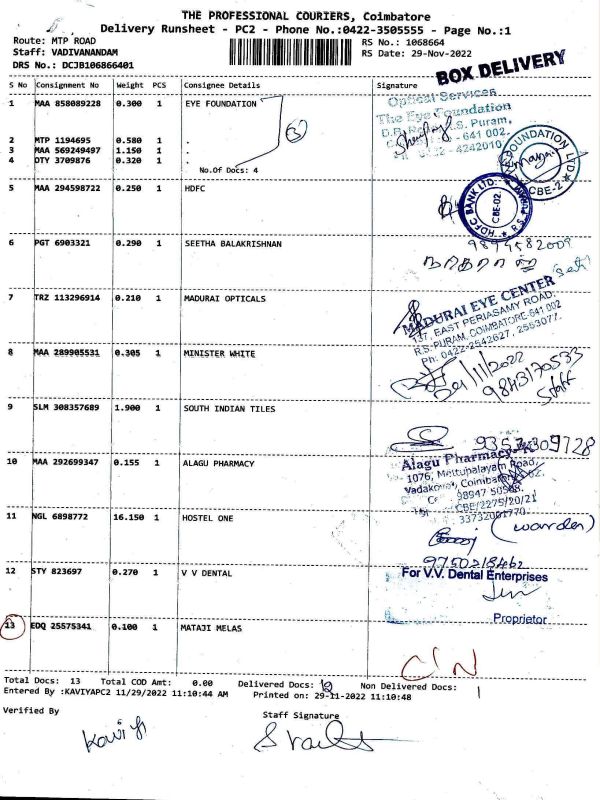 THE PROFESSIONAL COURIERS, Coimbatore
Delivery Runsheet - PC2 - Phone No.:0422-3505555 - Page No.:1
Route: MTP ROAD
Staff: VADIVANANDAM
DRS No.: DCJB106866401
RS No.: 1068664
RS Date: 29-Nov-2022
BOX DELIVERY
S No Consignment No Weight PCS Consignee Details Signature
1 MAA 858089228 0.300 1 EYE FOUNDATION
2 MTP 1194695 0.580 1 .
3 MAA 569249497 1.150 1 .
4 DTY 3709876 0.320 1 .
No.Of Docs: 4
Optical Services
The Eye Foundation
S. Puram,
641 002.
4242010
FOUNDATION LTD
CBE-2
5 MAA 294598722 0.250 1 HDFC
HDFC BANK LTD.
CBE-02.
6 PGT 6903321 0.290 1 SEETHA BALAKRISHNAN
9894582009
7 TRZ 113296914 0.210 1 MADURAI OPTICALS
MADURAI EYE CENTER
137, EAST PERIASAMY ROAD,
R.S. PURAM, COIMBATORE-641 002
Ph: 0422-2542627, 2553077.
8 MAA 289905531 0.305 1 MINISTER WHITE
29/11/2022
9843170533
Staff
9 SLM 308357689 1.900 1 SOUTH INDIAN TILES
10 MAA 292699347 0.155 1 ALAGU PHARMACY
Alagu Pharmacy
1076, Mettupalayam Road,
11 NGL 6898772 16.150 1 HOSTEL ONE
(warden)
9750218462
12 STY 823697 0.270 1 V V DENTAL
For V.V. Dental Enterprises
Proprietor
13 EDQ 25575341 0.100 1 MATAJI MELAS
C/N
Total Docs: 13 Total COD Amt: 0.00 Delivered Docs: 12 Non Delivered Docs: 1
Entered By :KAVIYAPC2 11/29/2022 11:10:44 AM Printed on: 29-11-2022 11:10:48
Verified By
Staff Signature